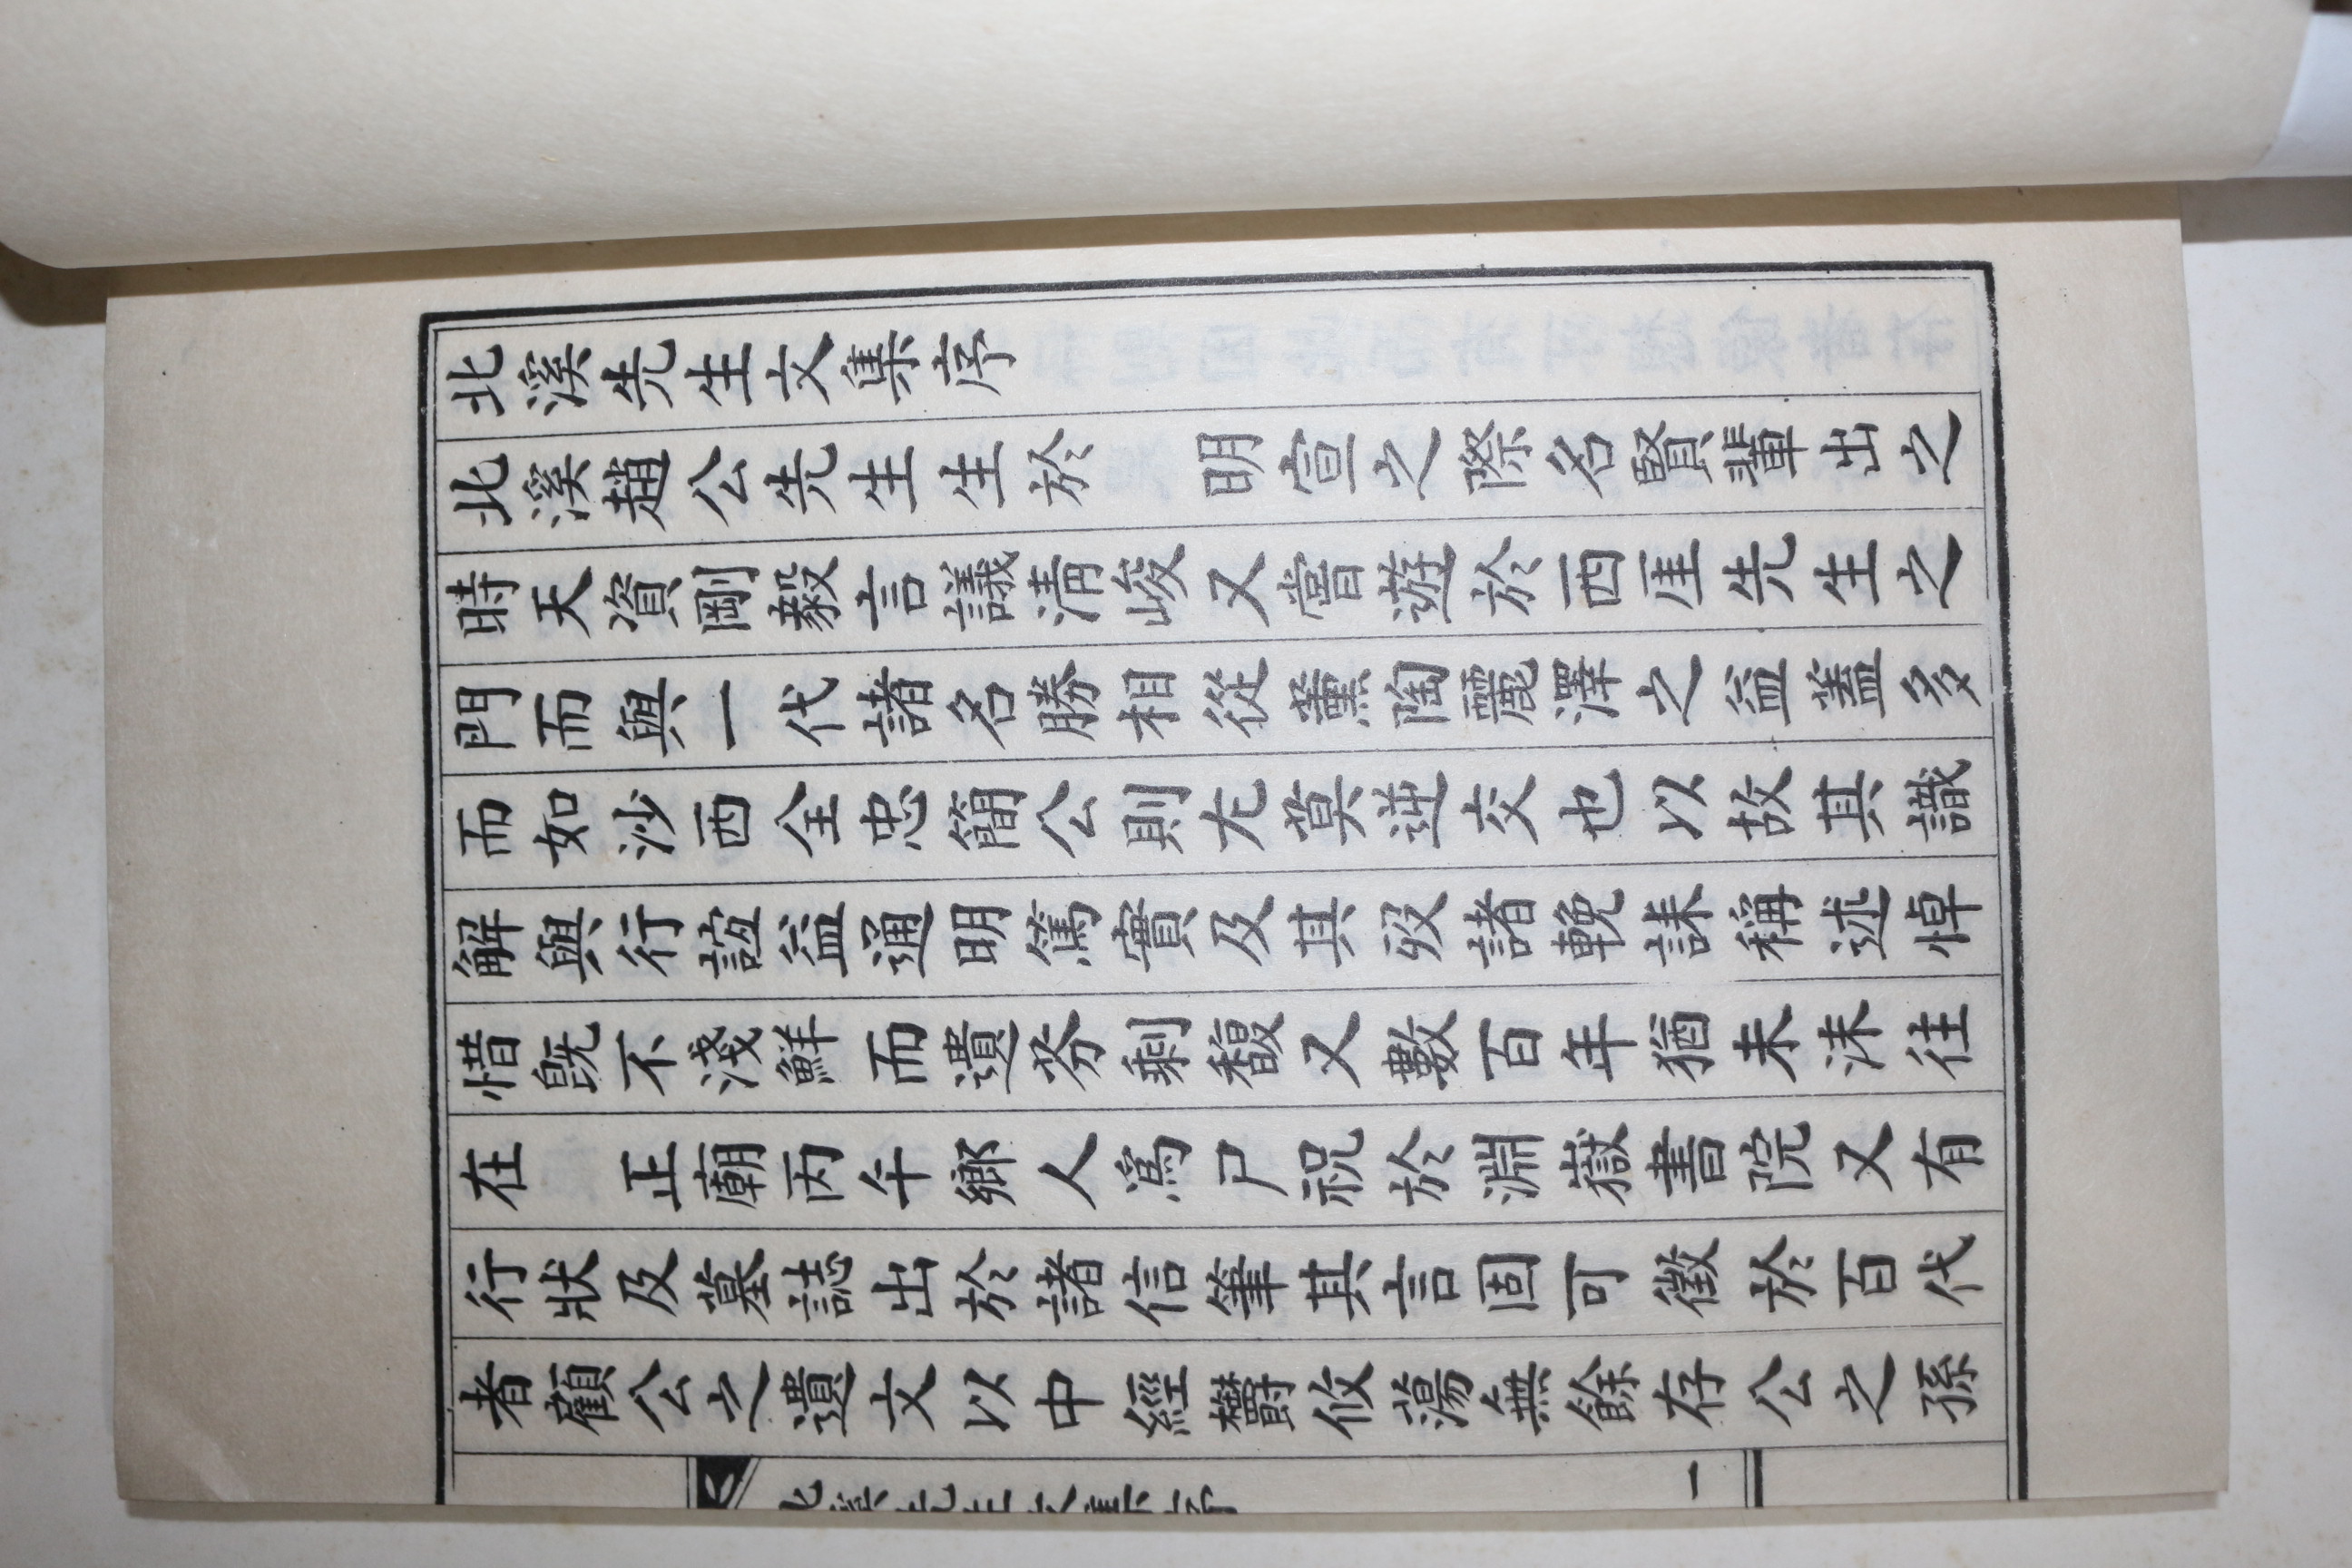 北溪先生文集序
北溪趙公先生生於　明宣之際名賢輩出之
時天資剛毅言議淸峻又嘗遊於西厓先生之
門而與一代諸名勝相從薰陶麗澤之益蓋多
而如沙西全忠簡公則尤莫逆交也以故其識
解與行誼益通明篤實及其歿諸輓誄稱述悼
惜旣不淺鮮而遺芬剩馥又數百年猶未沬往
在　正廟丙午鄕人爲尸祝於淵嶽書院又有
行狀及墓誌出於諸信筆其言固可徵於百代
者顧公之遺文以中經欝攸蕩無餘存公之孫
一